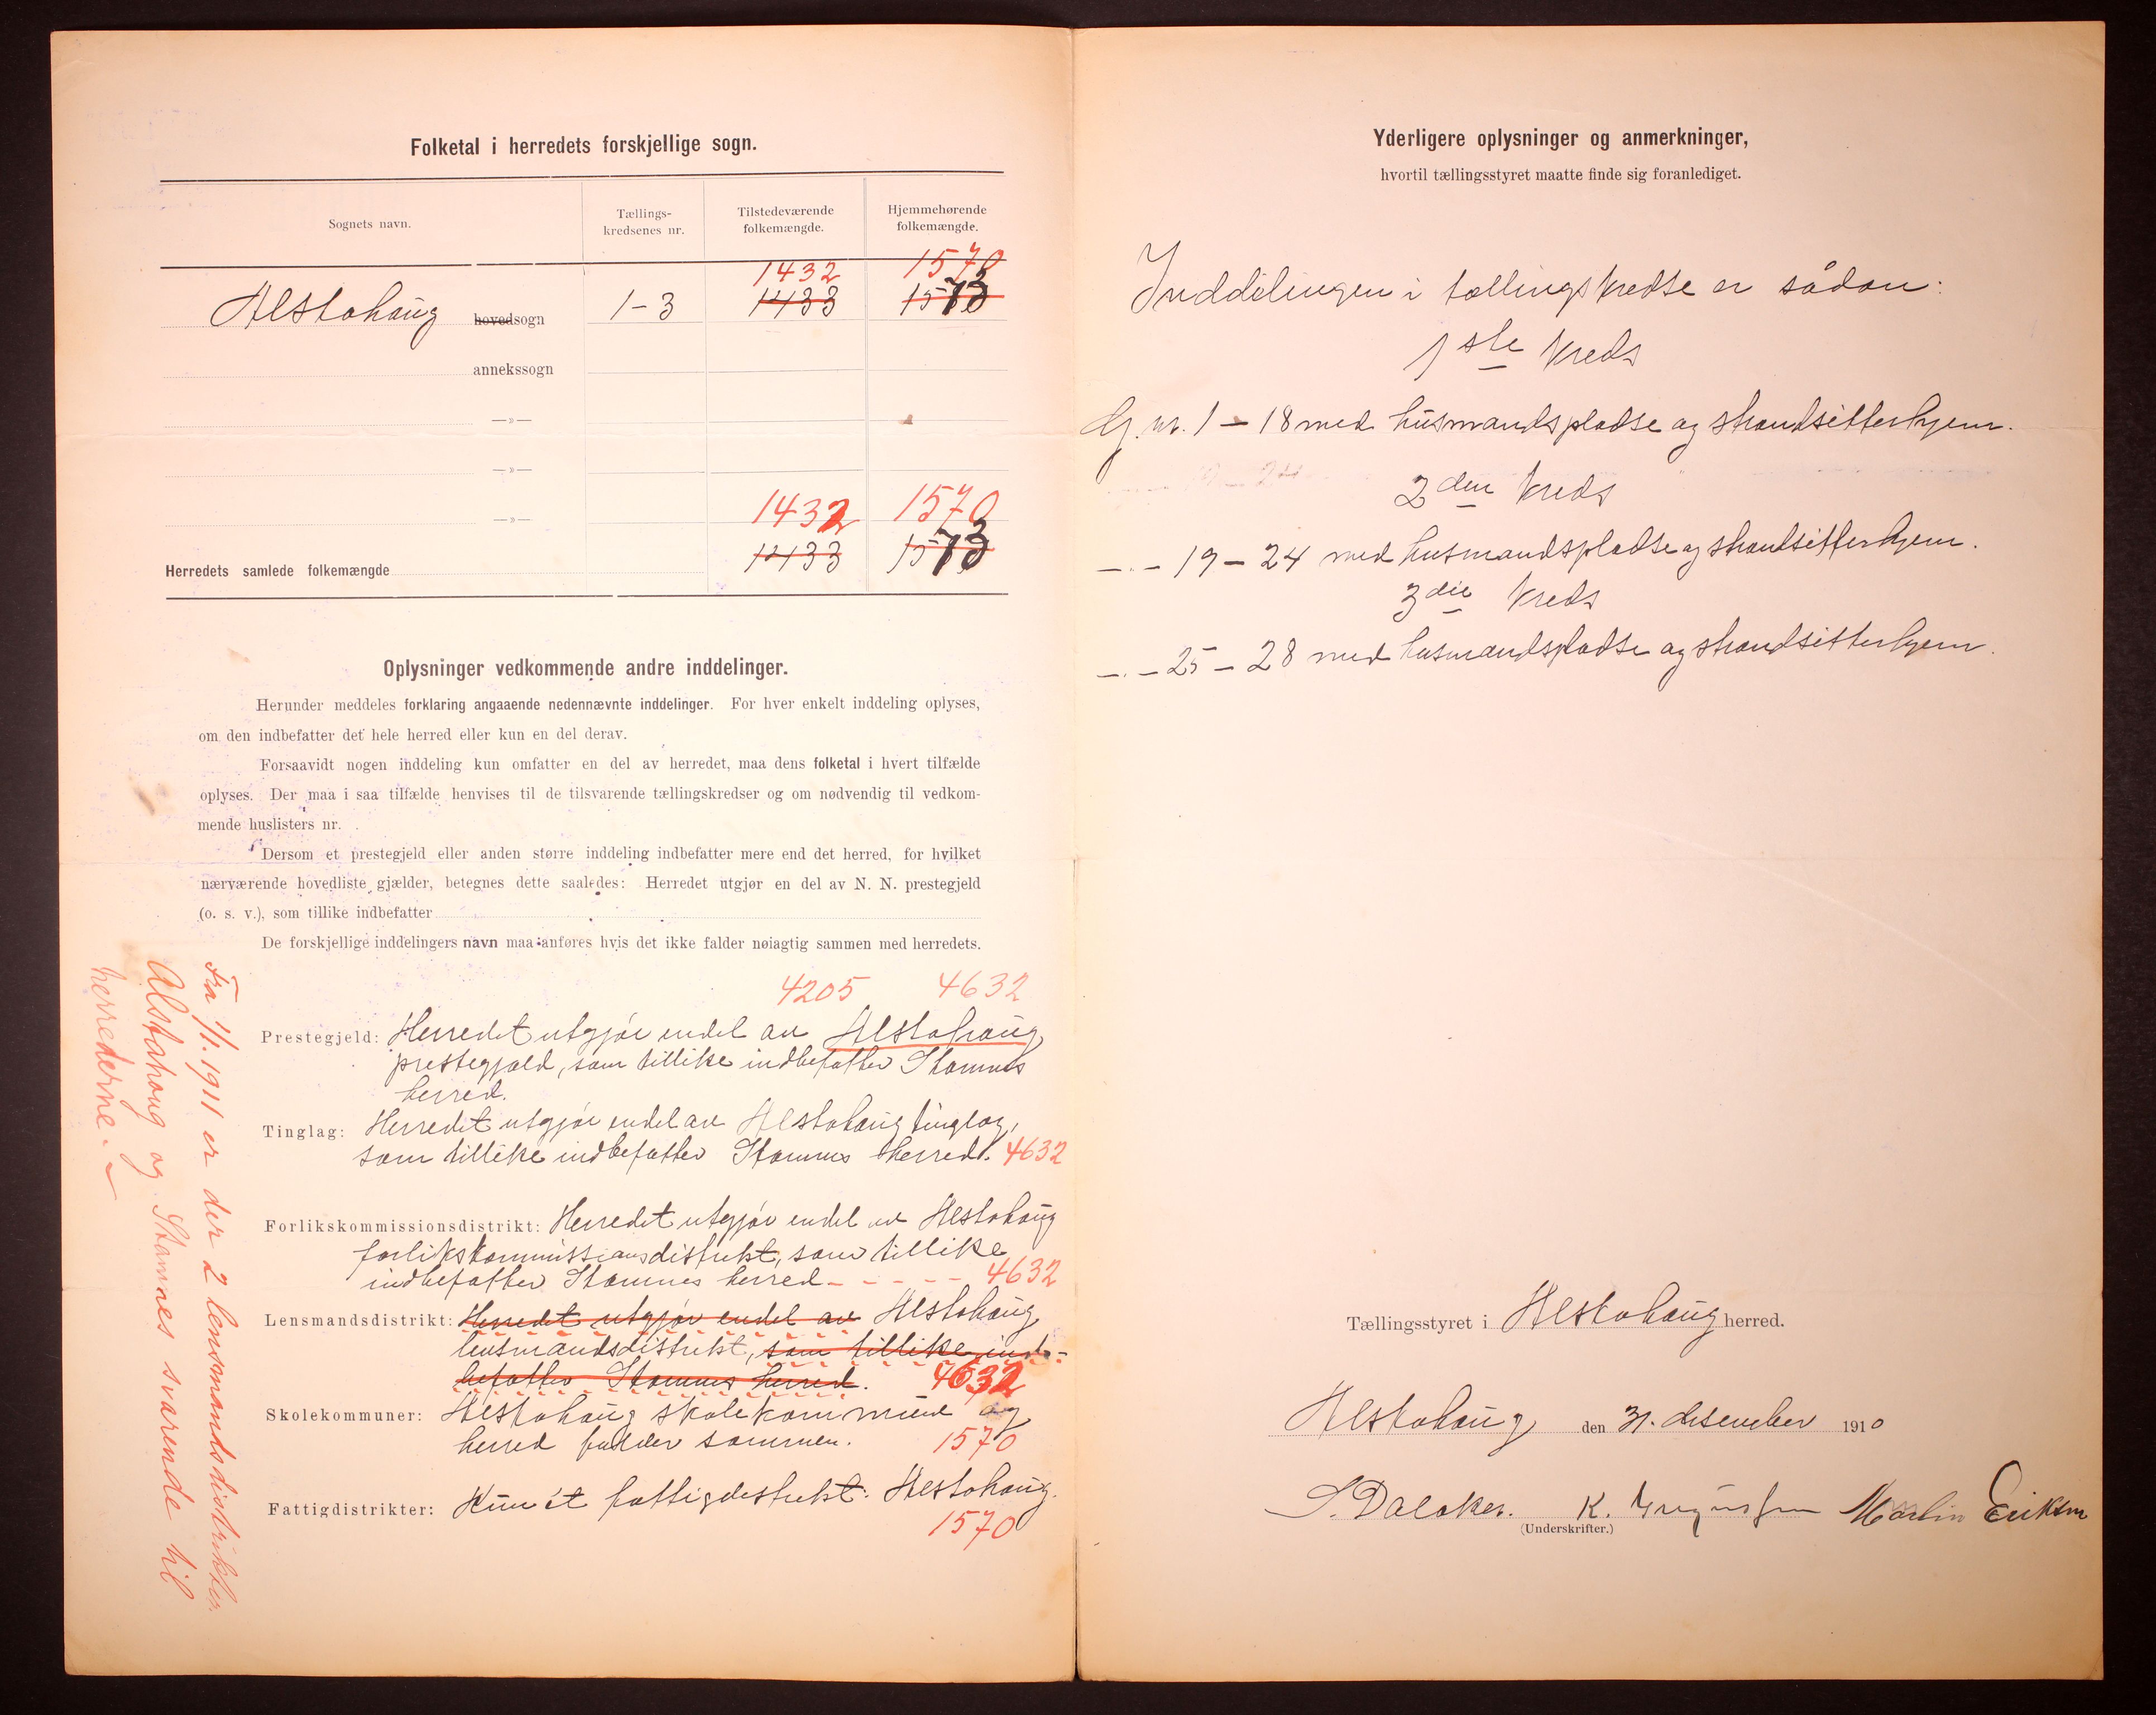 Folketal i herredets forskjellige sogn.
Sognets navn.
Tællings-
kredsenes nr.
Tilstedeværende
folkemængde.
Hjemmehørende
folkemængde.
1432 1570
Alstahaug hovedsogn 1-3 1433 1573
annekssogn
—»—
—»—
—»—
1432 1570
Herredets samlede folkemængde 1433 1573
Oplysninger vedkommende andre inddelinger.
Herunder meddeles forklaring angaaende nedennævnte inddelinger. For hver enkelt inddeling oplyses,
om den indbefatter det hele herred eller kun en del derav.
Forsaavidt nogen inddeling kun omfatter en del av herredet, maa dens folketal i hvert tilfælde
oplyses. Der maa i saa tilfælde henvises til de tilsvarende tællingskredser og om nødvendig til vedkom-
mende huslisters nr.
Dersom et prestegjeld eller anden større inddeling indbefatter mere end det herred, for hvilket
nærværende hovedliste gjælder, betegnes dette saaledes: Herredet utgjør en del av N. N. prestegjeld
(o. s. v.), som tillike indbefatter
De forskjellige inddelingers navn maa anføres hvis det ikke falder nøiagtig sammen med herredets.
4205 4632
Prestegjeld: Herredet utgjør endel av Alstahaug
prestegjæld, som tillike indbefatter Stamnes
herred.
Tinglag: Herredet utgjør endel av Alstahaug tinglag,
som tillike indbefatter Stamnes herred. 4632
Forlikskommissionsdistrikt: Herredet utgjør endel av Alstahaug
forlikskommissionsdistrikt, som tillike
indbefatter Stamnes herred - - - - - 4632
Lensmandsdistrikt: Herredet utgjør endel av Alstahaug
lensmandsdistrikt, som tillike ind-
befatter Stamnes herred. 4632
Skolekommuner: Alstahaug skolekommune og
herred falder sammen. 1570
Fattigdistrikter: Kun ét fattigdistrikt: Alstahaug.
1570
Fra 1/1. 1911 er der 2 lensmandsdistrikter.
Alstahaug og Stamnes svarende til
herrederne. —
Yderligere oplysninger og anmerkninger,
hvortil tællingsstyret maatte finde sig foranlediget.
Inddelingen i tællingskredse er sådan:
1ste kreds
Gj. nr. 1 – 18 med husmandspladse og strandsitterhjem.
2den kreds
—.— 19 – 24 med husmandspladse og strandsitterhjem.
3die kreds
—.— 25 – 28 med husmandspladse og strandsitterhjem.
Tællingsstyret i Alstahaug herred.
Alstahaug den 31. desember 1910
S. Dalaker. K. Martin Eriksen
(Underskrifter.)